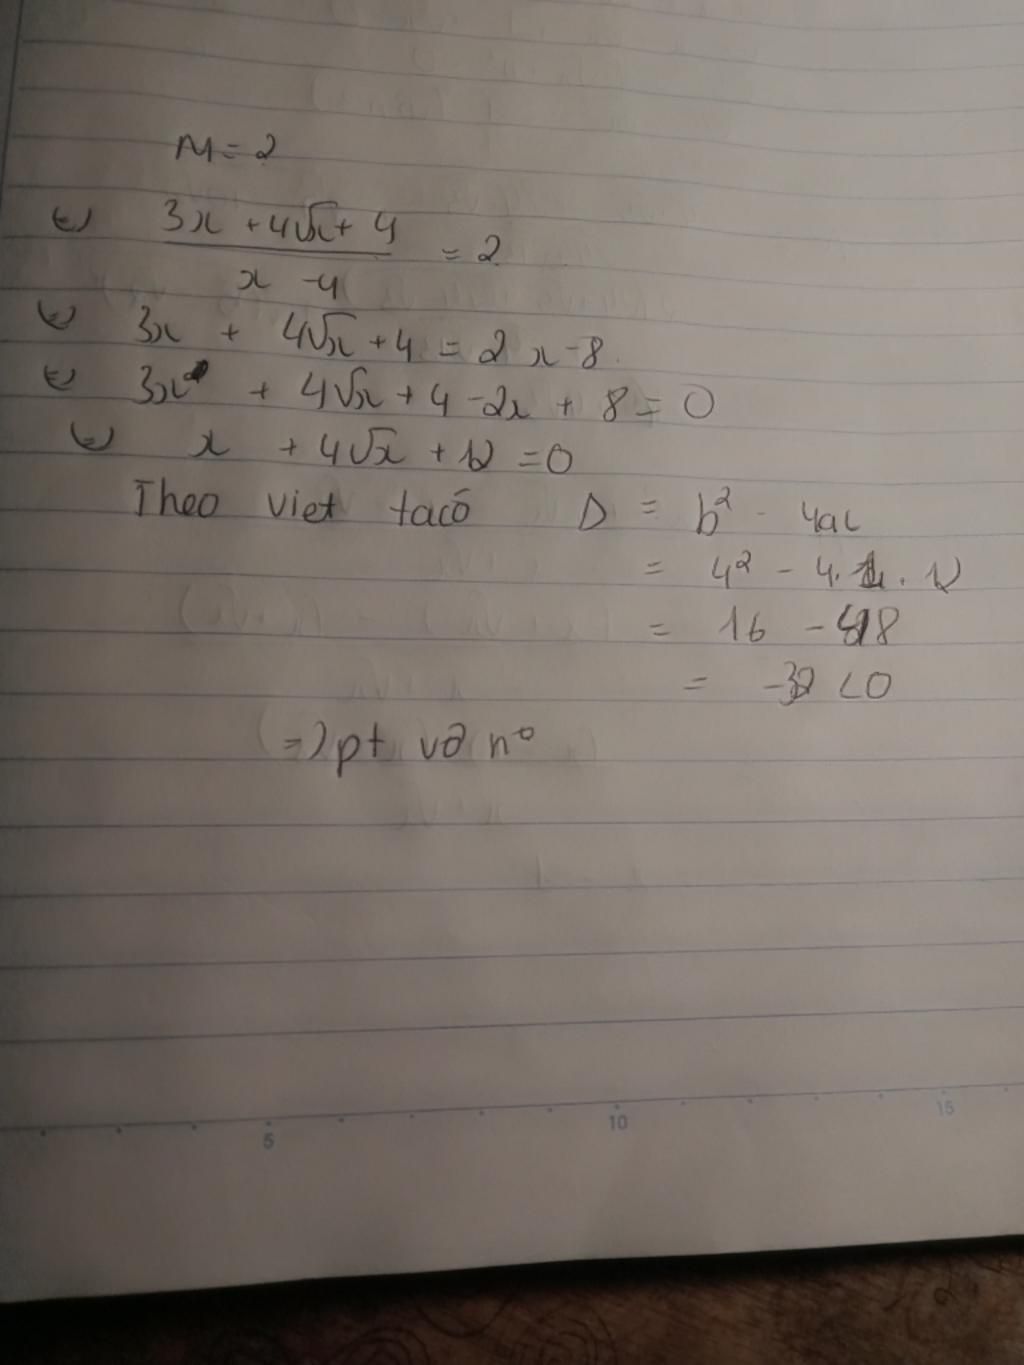 M = 2
⇔ (3x + 4√x + 4)/(x - 4) = 2
⇔ 3x + 4√x + 4 = 2x - 8.
⇔ 3x + 4√x + 4 - 2x + 8 = 0
⇔ x + 4√x + 12 = 0
Theo viet ta có Δ = b² - 4ac
= 4² - 4.1.12
= 16 - 48
= -32 < 0
=> pt vô n°
5 10 15